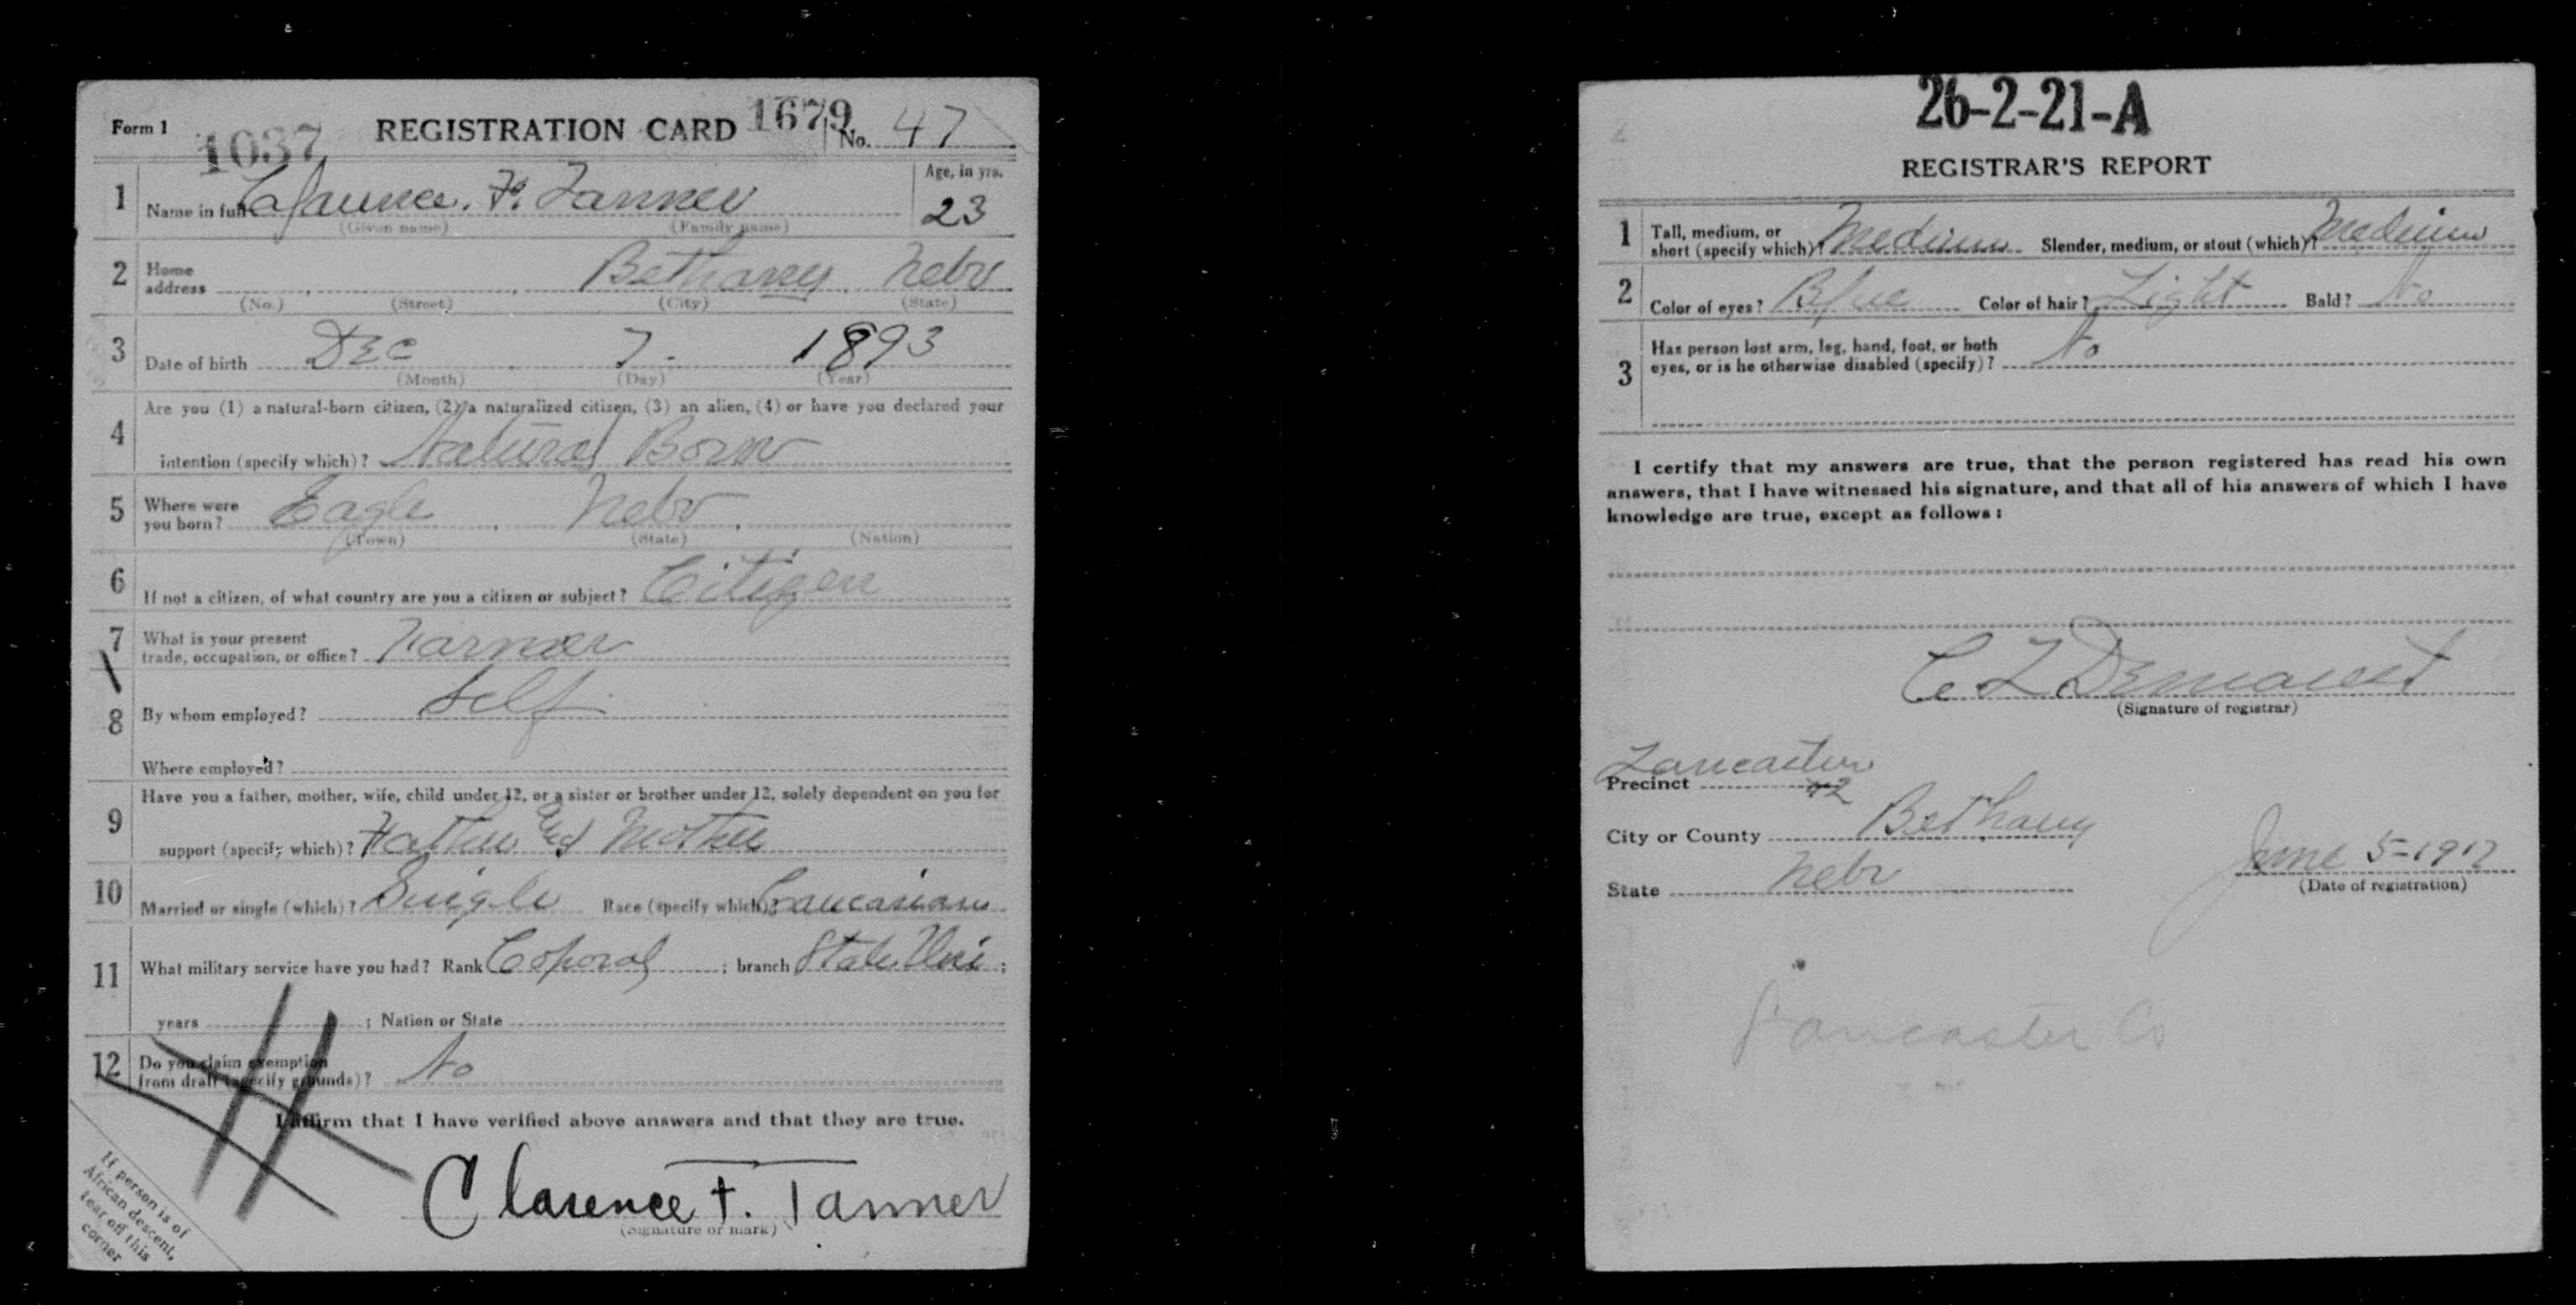 Form 1 1037 REGISTRATION CARD 1679 No. 47
1 Name in full Clarence. F. Tanner Age, in yrs. 23
(Given name) (Family name)
2 Home address Bethany Nebr
(No.) (Street) (City) (State)
3 Date of birth Dec 7. 1893
(Month) (Day) (Year)
4 Are you (1) a natural-born citizen, (2) a naturalized citizen, (3) an alien, (4) or have you declared your
intention (specify which)? Natural Born
5 Where were
you born? Eagle, Nebr,
(Town) (State) (Nation)
6 If not a citizen, of what country are you a citizen or subject? Citizen
7 What is your present
trade, occupation, or office? Farmer
8 By whom employed? Self
Where employed?
9 Have you a father, mother, wife, child under 12, or a sister or brother under 12, solely dependent on you for
support (specify which)? Father and Mother
10 Married or single (which)? Single Race (specify which)? Caucasian
11 What military service have you had? Rank Coporal ; branch State Uni ;
years ; Nation or State
12 Do you claim exemption
from draft (specify grounds)? No
I affirm that I have verified above answers and that they are true.
Clarence F. Tanner
(Signature or mark)
If person is of
African descent,
tear off this
corner
26-2-21-A
REGISTRAR'S REPORT
1 Tall, medium, or
short (specify which)? Medium Slender, medium, or stout (which)? Medium
2 Color of eyes? Blue Color of hair? Light Bald? No
3 Has person lost arm, leg, hand, foot, or both
eyes, or is he otherwise disabled (specify)? No
I certify that my answers are true, that the person registered has read his own
answers, that I have witnessed his signature, and that all of his answers of which I have
knowledge are true, except as follows:
(Signature of registrar)
Lancaster
Precinct #2
City or County Bethany
State Nebr June 5-1917
(Date of registration)
Lancaster Co